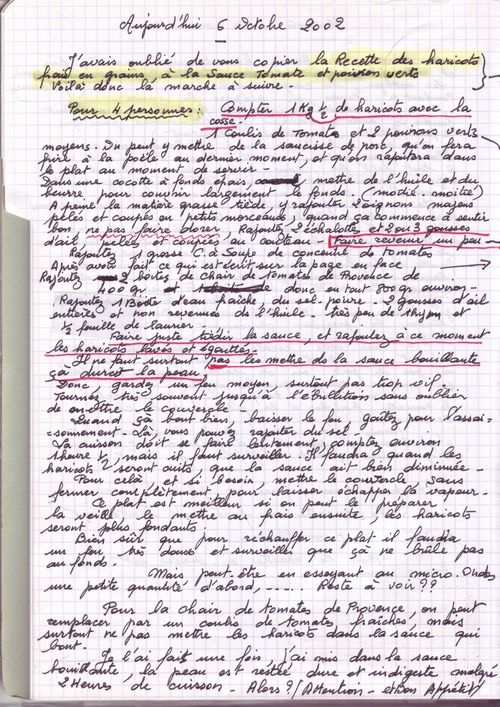 Aujourd'hui 6 Octobre 2002
J'avais oublié de vous copier la Recette des haricots
frais en grains, à la Sauce Tomate et poivron verts
Voilà donc la marche à suivre.
Pour 4 personnes: Compter 1 Kg ½ de haricots avec la
cosse.
1 Coulis de Tomates et 2 poivrons verts
moyens. On peut y mettre de la saucisse de porc, qu'on fera
frire à la poêle au dernier moment, et qu'on rajoutera dans
le plat au moment de servir.
Dans une cocotte à fond épais, mettre de l'huile et du
beurre pour couvrir largement le fonds. (moitié-moitié)
A peine la matière grasse tiède y rajouter 2 oignons moyens
pelés et coupés en petits morceaux, quand ça commence à sentir
bon ne pas faire dorer, Rajoutez 2 échalottes et 2 ou 3 gousses
d'ail, pilées et coupées au couteau - Faire revenir un peu
Rajoutez 1 grosse C. à Soupe de concentré de tomates
Après avoir fait ce qui est écrit sur la page en face
Rajoutez 2 boîtes de chair de Tomates de Provence de
400 gr. donc en tout 800 gr environ-
Rajoutez 1 Boîte d'eau fraîche, du sel-poivre. 2 gousses d'ail
entières et non revenues de l'huile. très peu de thym et
½ feuille de laurier.
Faire juste tiédir la sauce, et rajoutez à ce moment
les haricots lavés et égouttés.
Il ne faut surtout pas les mettre de la sauce bouillante
çà durcit la peau
Donc, gardez un feu moyen, surtout pas trop vif.
Tournez très souvent jusqu'à l'ébullition sans oublier
de mettre le couvercle-
Quand çà bout bien, baisser le feu, goûtez pour l'assai-
sonnement - Là, vous pouvez rajouter du sel -
La cuisson doit se faire lentement, comptez environ
1 heure ½, mais il faut surveiller. Il faudra quand les
haricots seront cuits, que la sauce ait bien diminuée-
Pour celà, et si besoin, mettre le couvercle sans
fermer complètement, pour laisser échapper la vapeur-
Ce plat est meilleur si on peut le préparer
la veille, le mettre au frais ensuite, les haricots
seront plus fondants.
Bien sûr que pour réchauffer ce plat il faudra
un feu très doux et surveiller que çà ne brûle pas
au fond.
Mais peut être en essayant au micro. Ondes
une petite quantité d'abord, ..... Reste à voir ??
Pour la chair de tomates de Provence, on peut
remplacer par un coulis de tomates fraîches, mais
surtout ne pas mettre les haricots dans la sauce qui
bout.
Je l'ai fait une fois, j'ai mis dans la sauce
bouillante, la peau est restée dure et indigeste malgré
2 Heures de cuisson - Alors ?/ Attention - et Bon Appétit